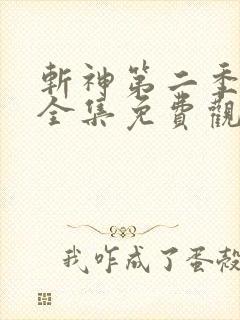 斬神第二季
全集免費觀
我咋成了蛋殼